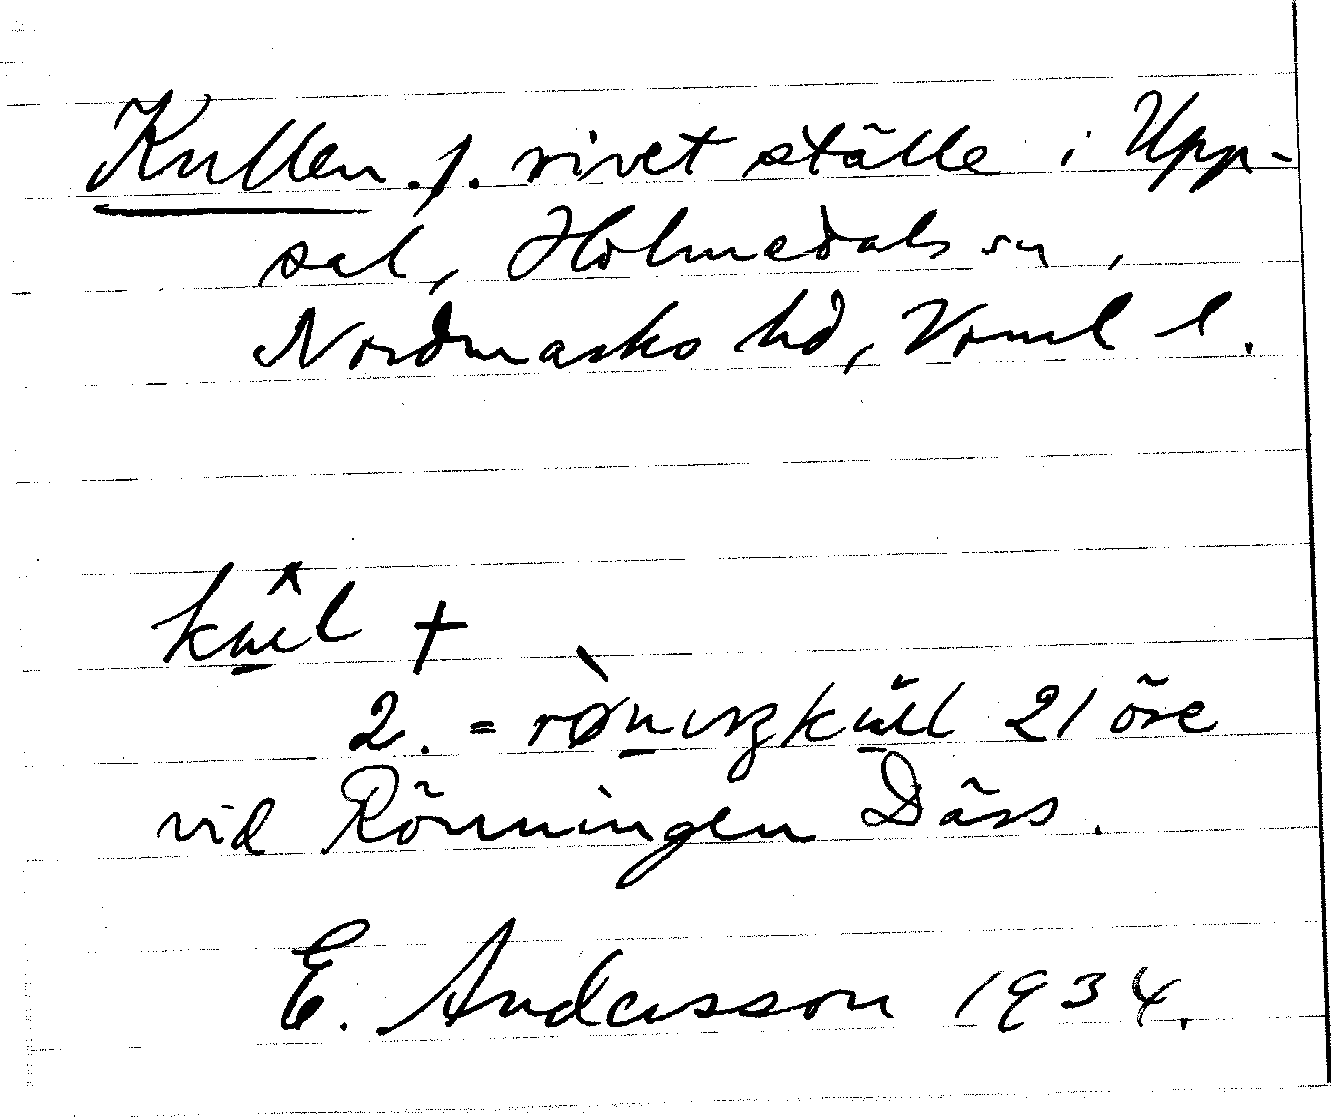 Kullen. f. rivet ställe i Upp-
sal, Holmedals sn,
Nordmarks hd, Vrml l.
kul +
2. = rönıŋkul 21 öre
vid Rönningen Däss.
E. Andersson 1934.